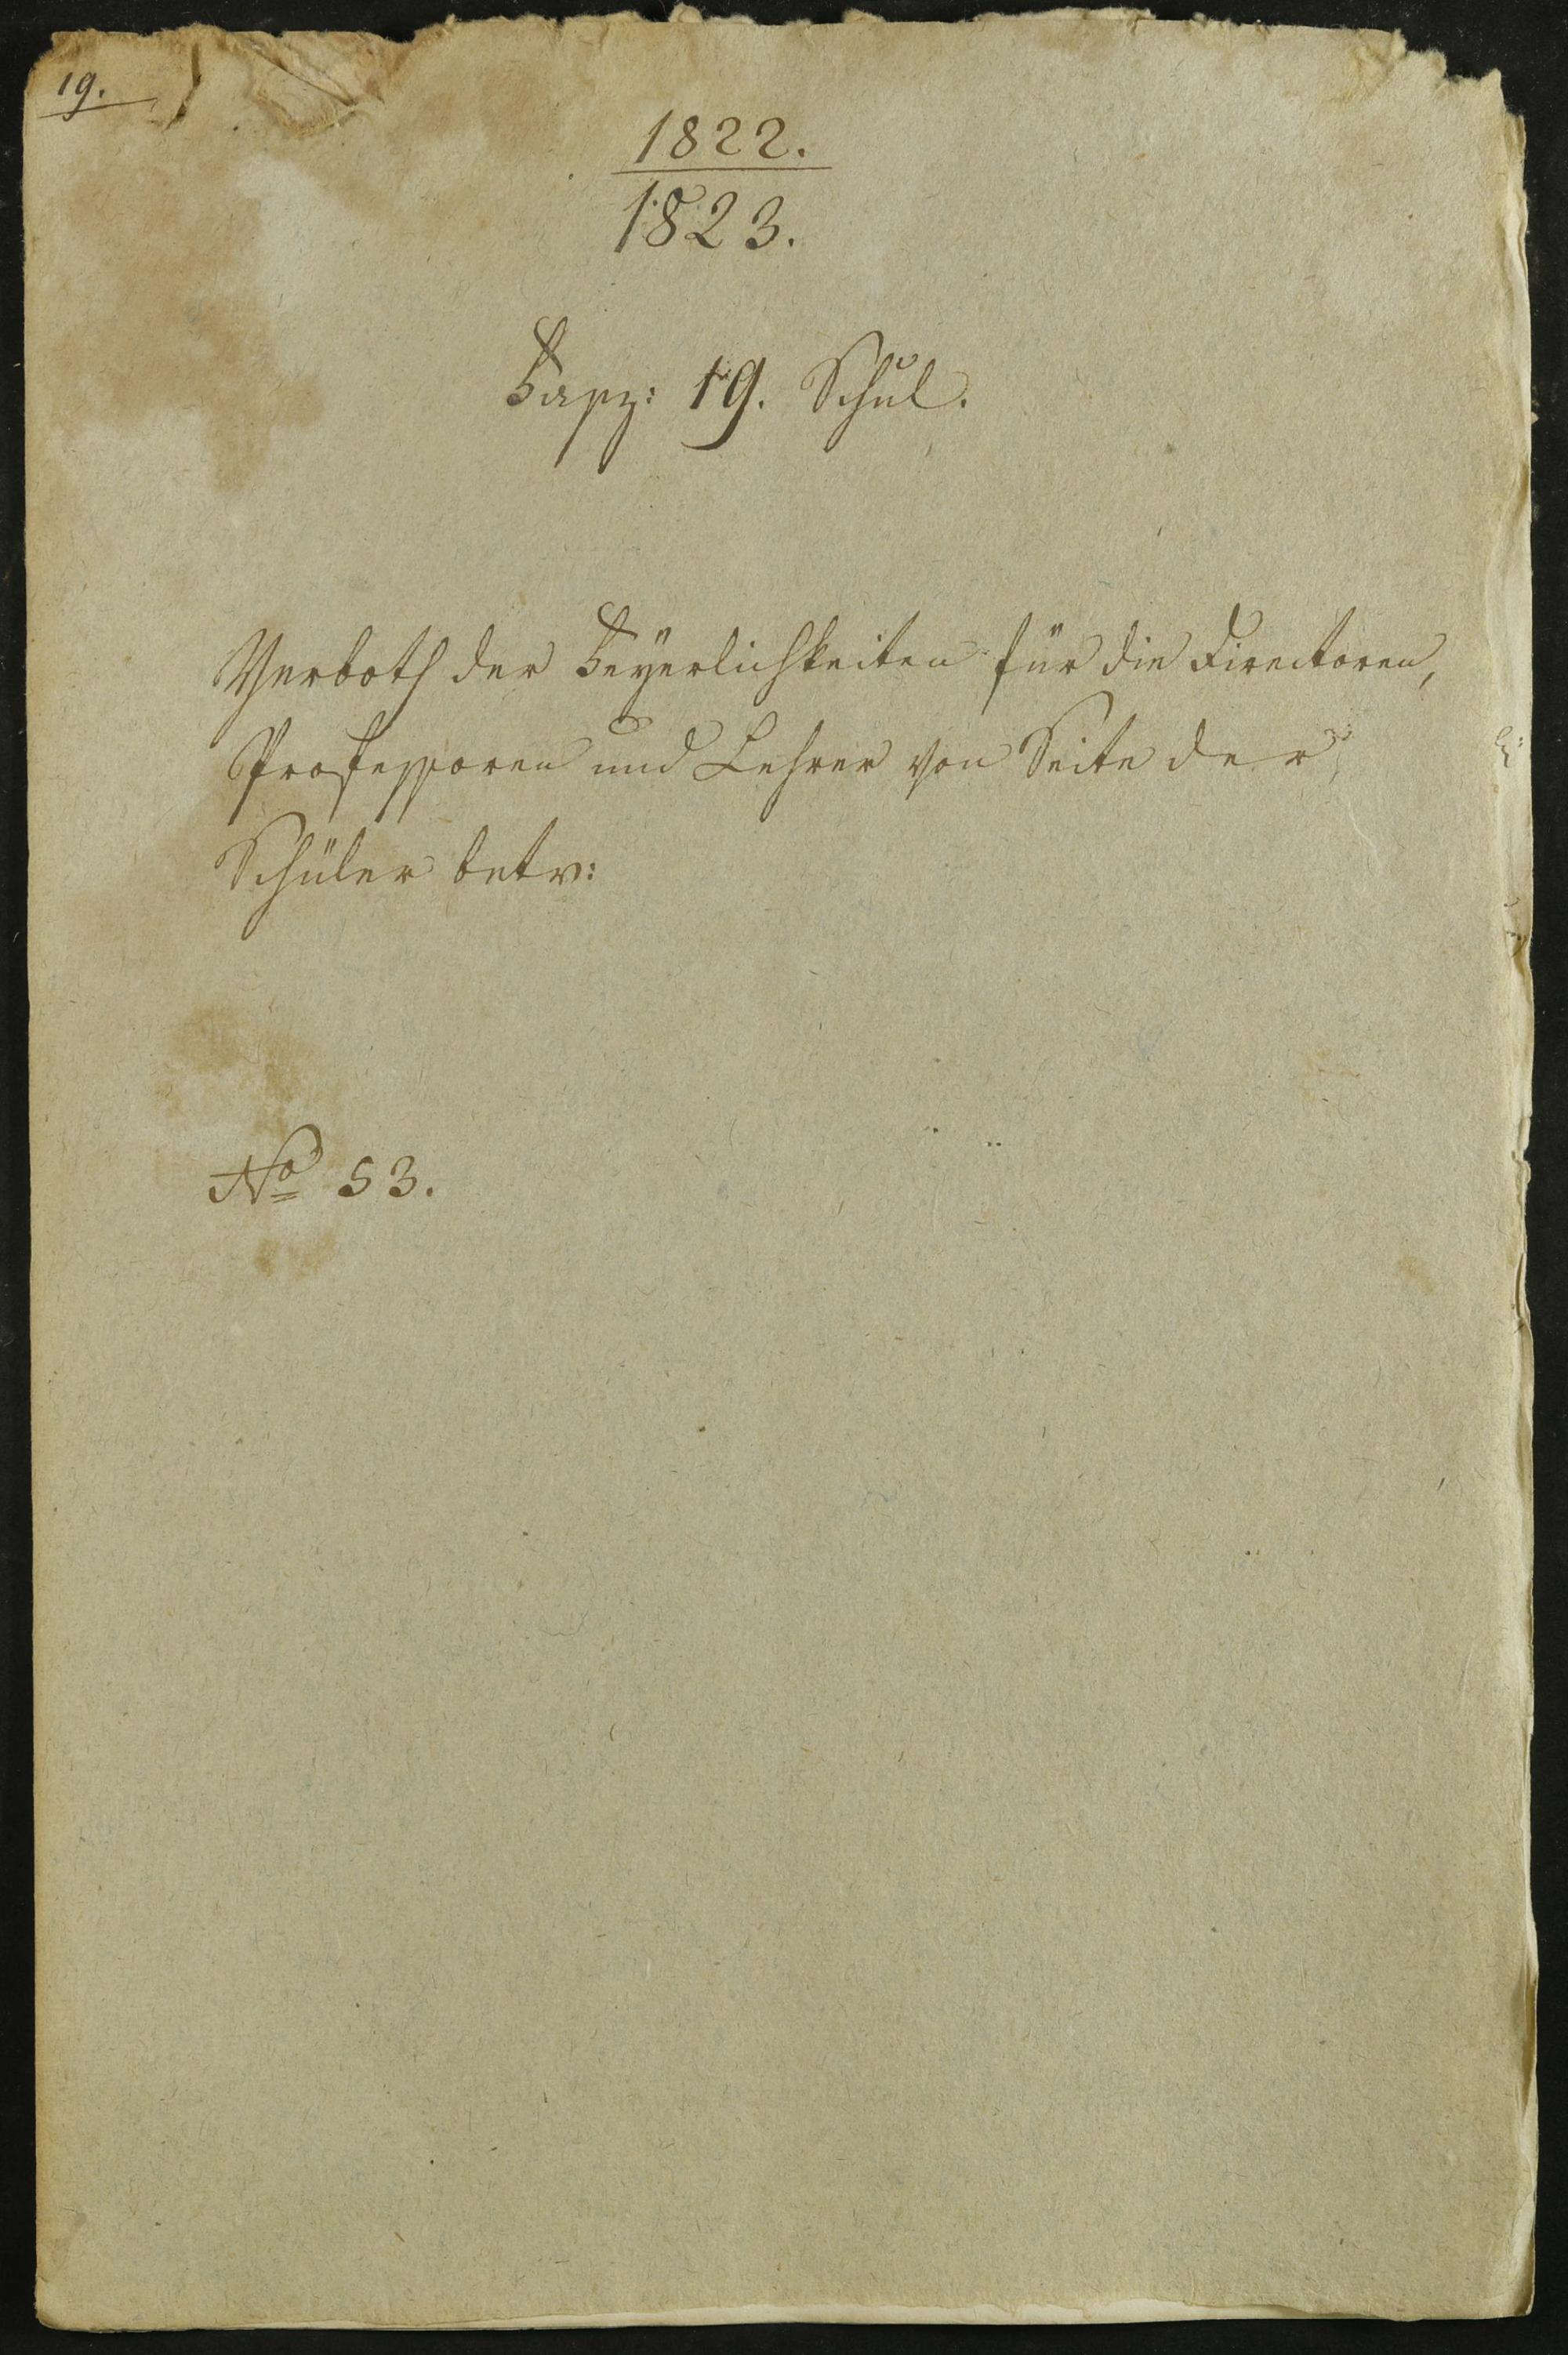 19.
1822.
1823.
Fasz: 19. Schul.
Verboth der Feyerlichkeiten für die Directoren,
Professoren und Lehrer von Seite der
Schüler betr:
No 53.